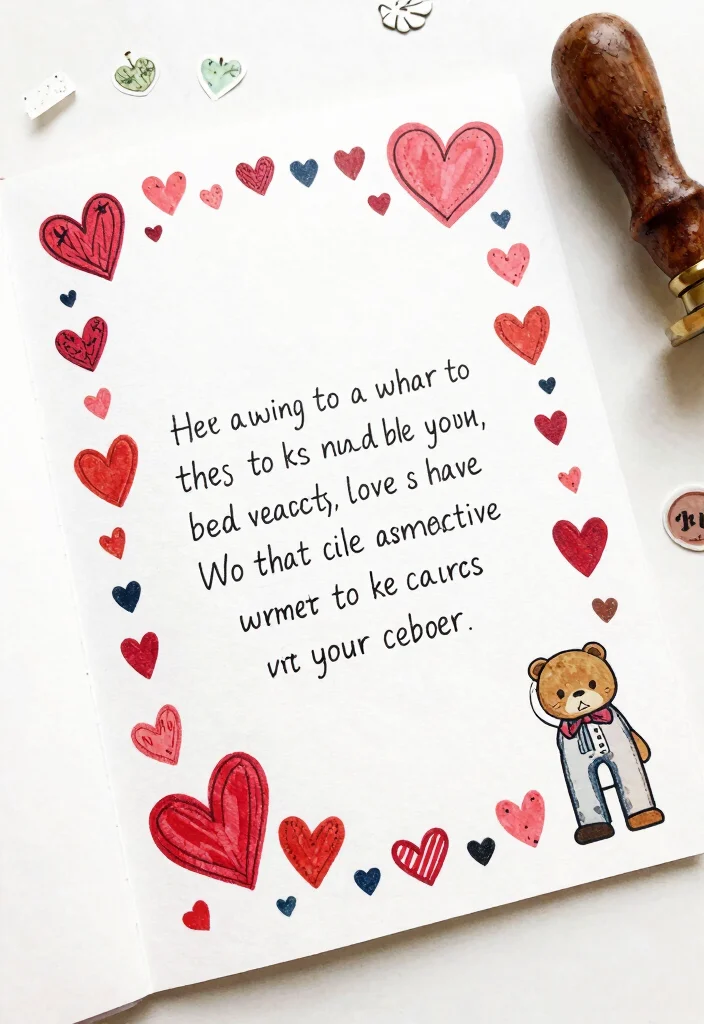 Hee awing to a whar to
thes to ks nud ble youn,
bed veaccts, love s have
Wo that cile asmective
wrmet to ke caurcs
vrt your ceboer.